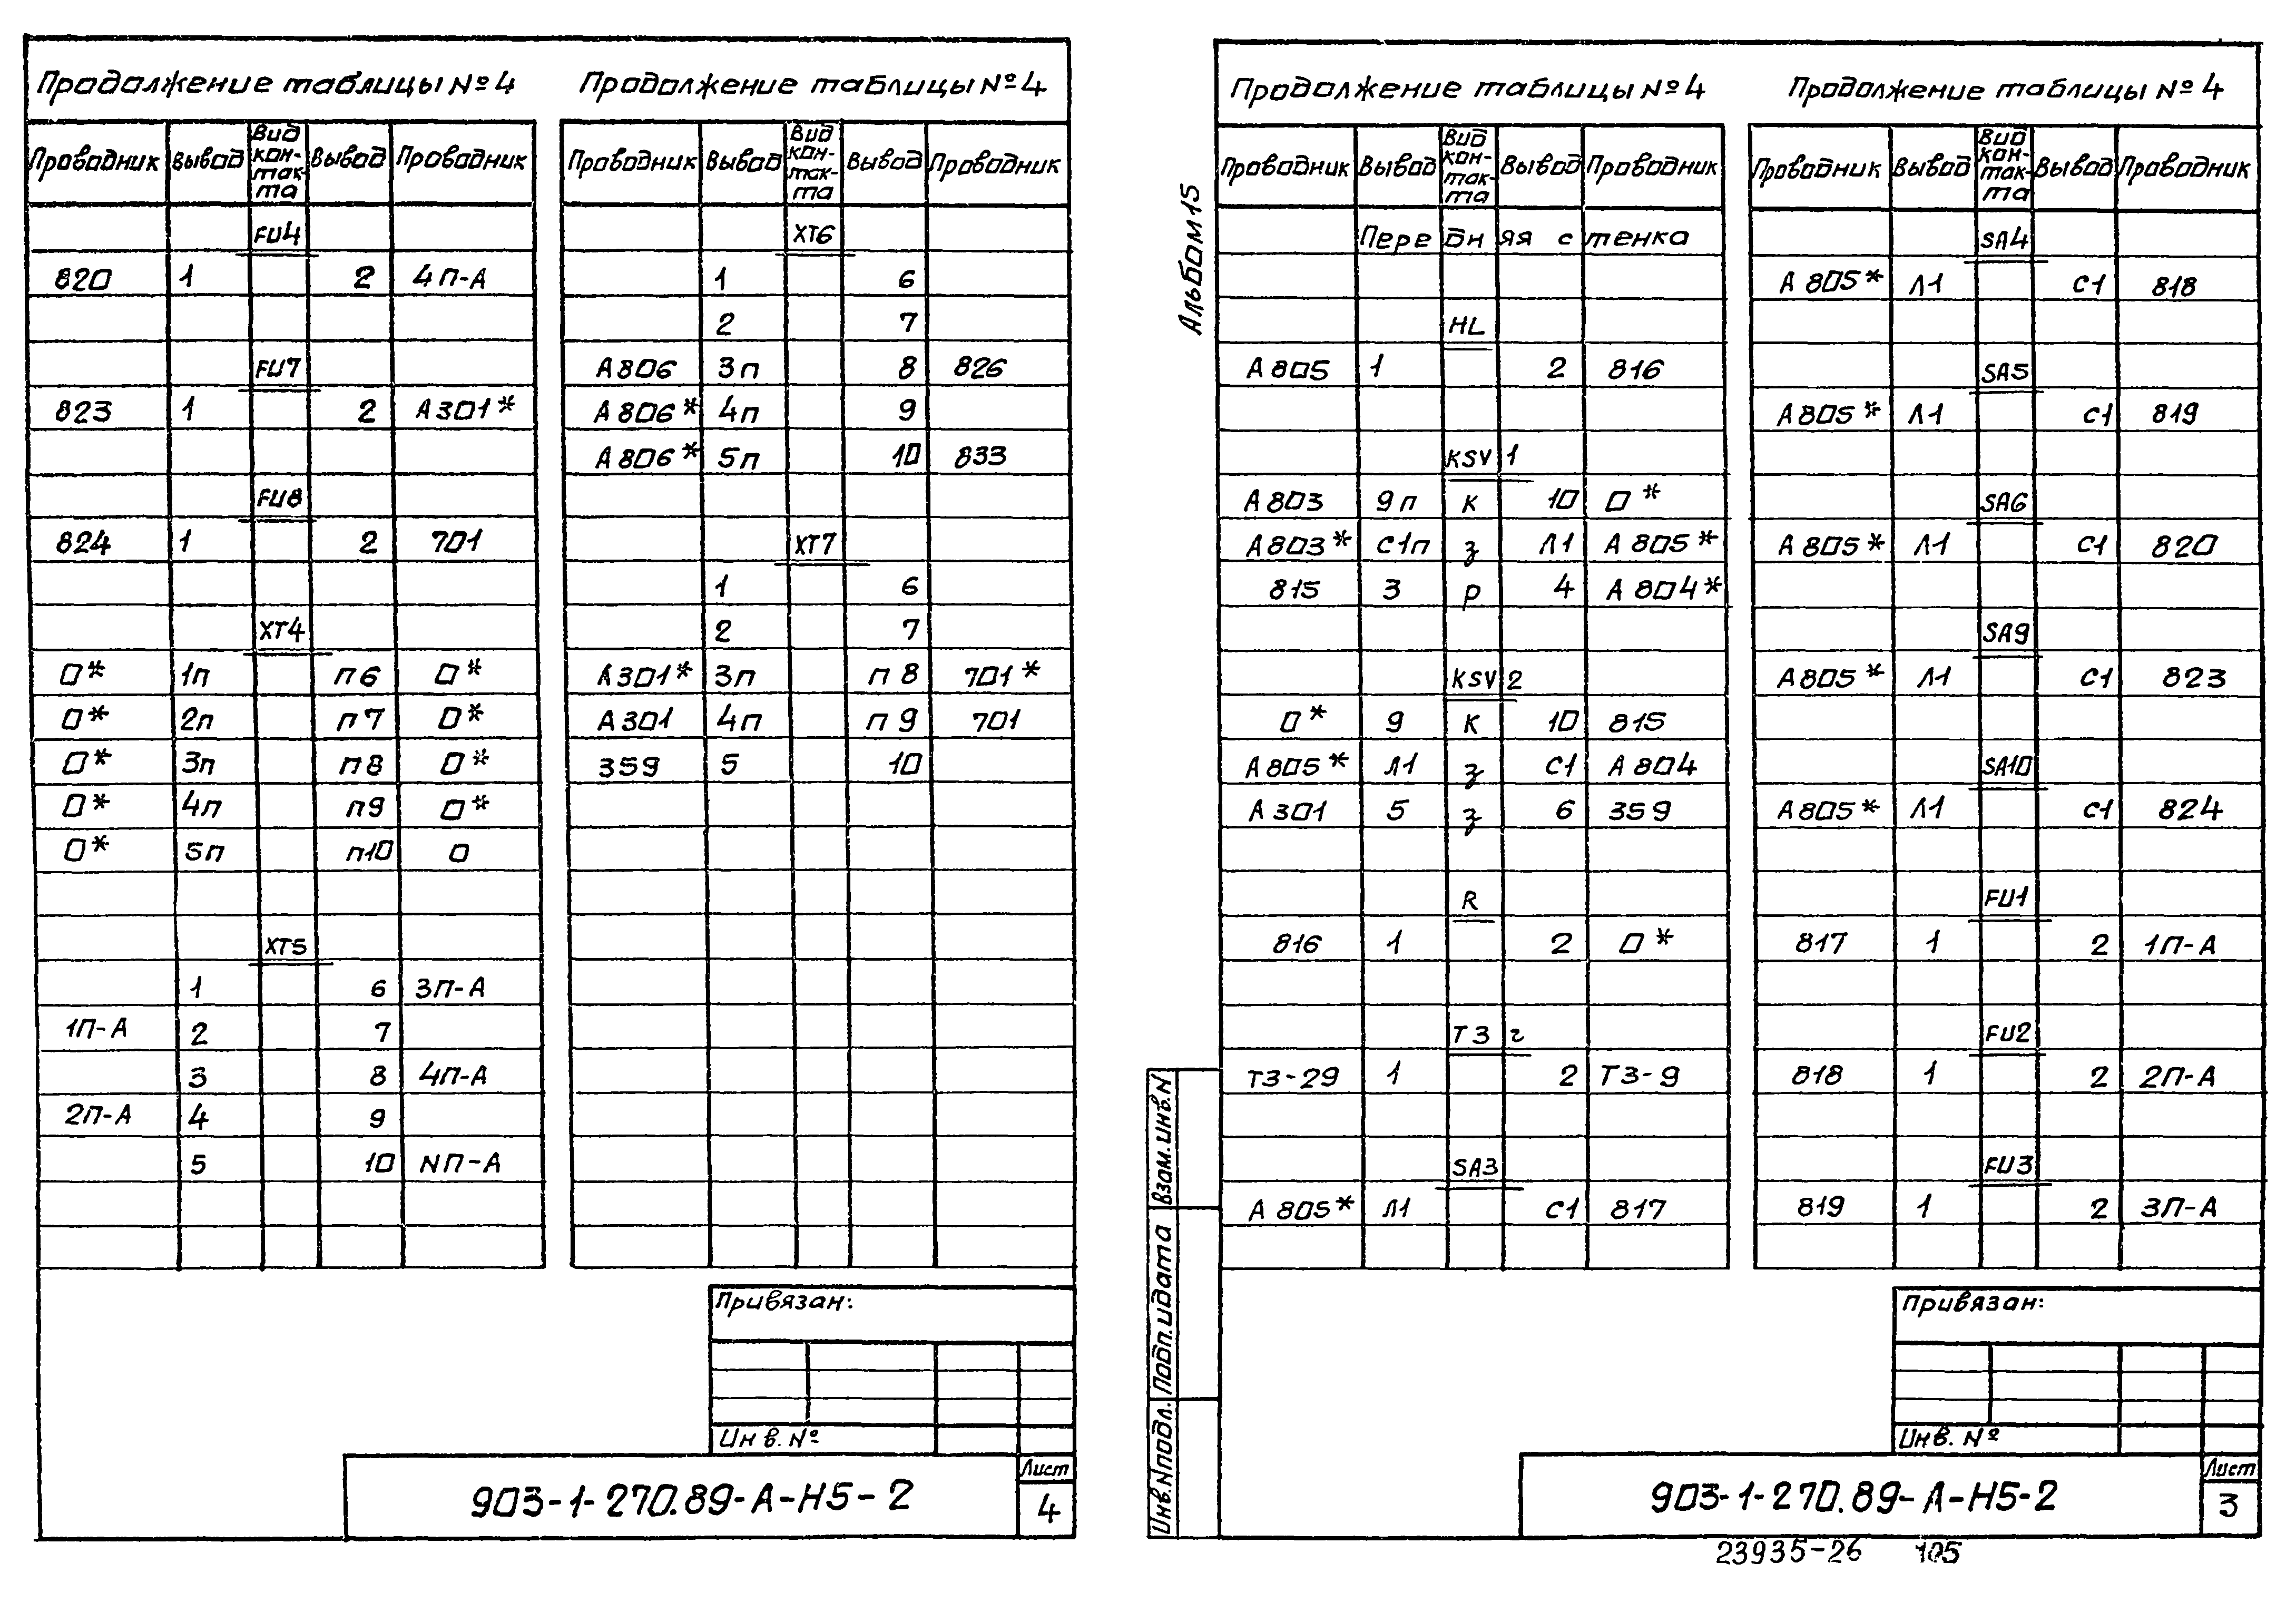 Продолжение таблицы №4
Проводник Вывод Вид кон-так-та Вывод Проводник
FU4
820 1 2 4П-А
FU7
823 1 2 А301*
FU8
824 1 2 701
XT4
0* 1п п6 0*
0* 2п п7 0*
0* 3п п8 0*
0* 4п п9 0*
0* 5п п10 0
XT5
1 6 3П-А
1П-А 2 7
3 8 4П-А
2П-А 4 9
5 10 NП-А
Продолжение таблицы №4
Проводник Вывод Вид кон-так-та Вывод Проводник
XT6
1 6
2 7
А806 3п 8 826
А806* 4п 9
А806* 5п 10 833
XT7
1 6
2 7
А301* 3п п8 701*
А301 4п п9 701
359 5 10
Привязан:
Инв. №
903-1-270.89-А-Н5-2
Лист
4
Альбом 15
Продолжение таблицы №4
Проводник Вывод Вид кон-так-та Вывод Проводник
Передняя стенка
HL
А805 1 2 816
KSV1
А803 9п к 10 0*
А803* С1п з Л1 А805*
815 3 р 4 А804*
KSV2
0* 9 к 10 815
А805* Л1 з С1 А804
А301 5 з 6 359
R
816 1 2 0*
Т3г
Т3-29 1 2 Т3-9
SA3
А805* Л1 С1 817
Продолжение таблицы №4
Проводник Вывод Вид кон-так-та Вывод Проводник
SA4
А805* Л1 С1 818
SA5
А805* Л1 С1 819
SA6
А805* Л1 С1 820
SA9
А805* Л1 С1 823
SA10
А805* Л1 С1 824
FU1
817 1 2 1П-А
FU2
818 1 2 2П-А
FU3
819 1 2 3П-А
Взам. инв. N
Подп. и дата
Инв. N подл.
Привязан:
Инв. №
903-1-270.89-А-Н5-2
Лист
3
23935-26 105